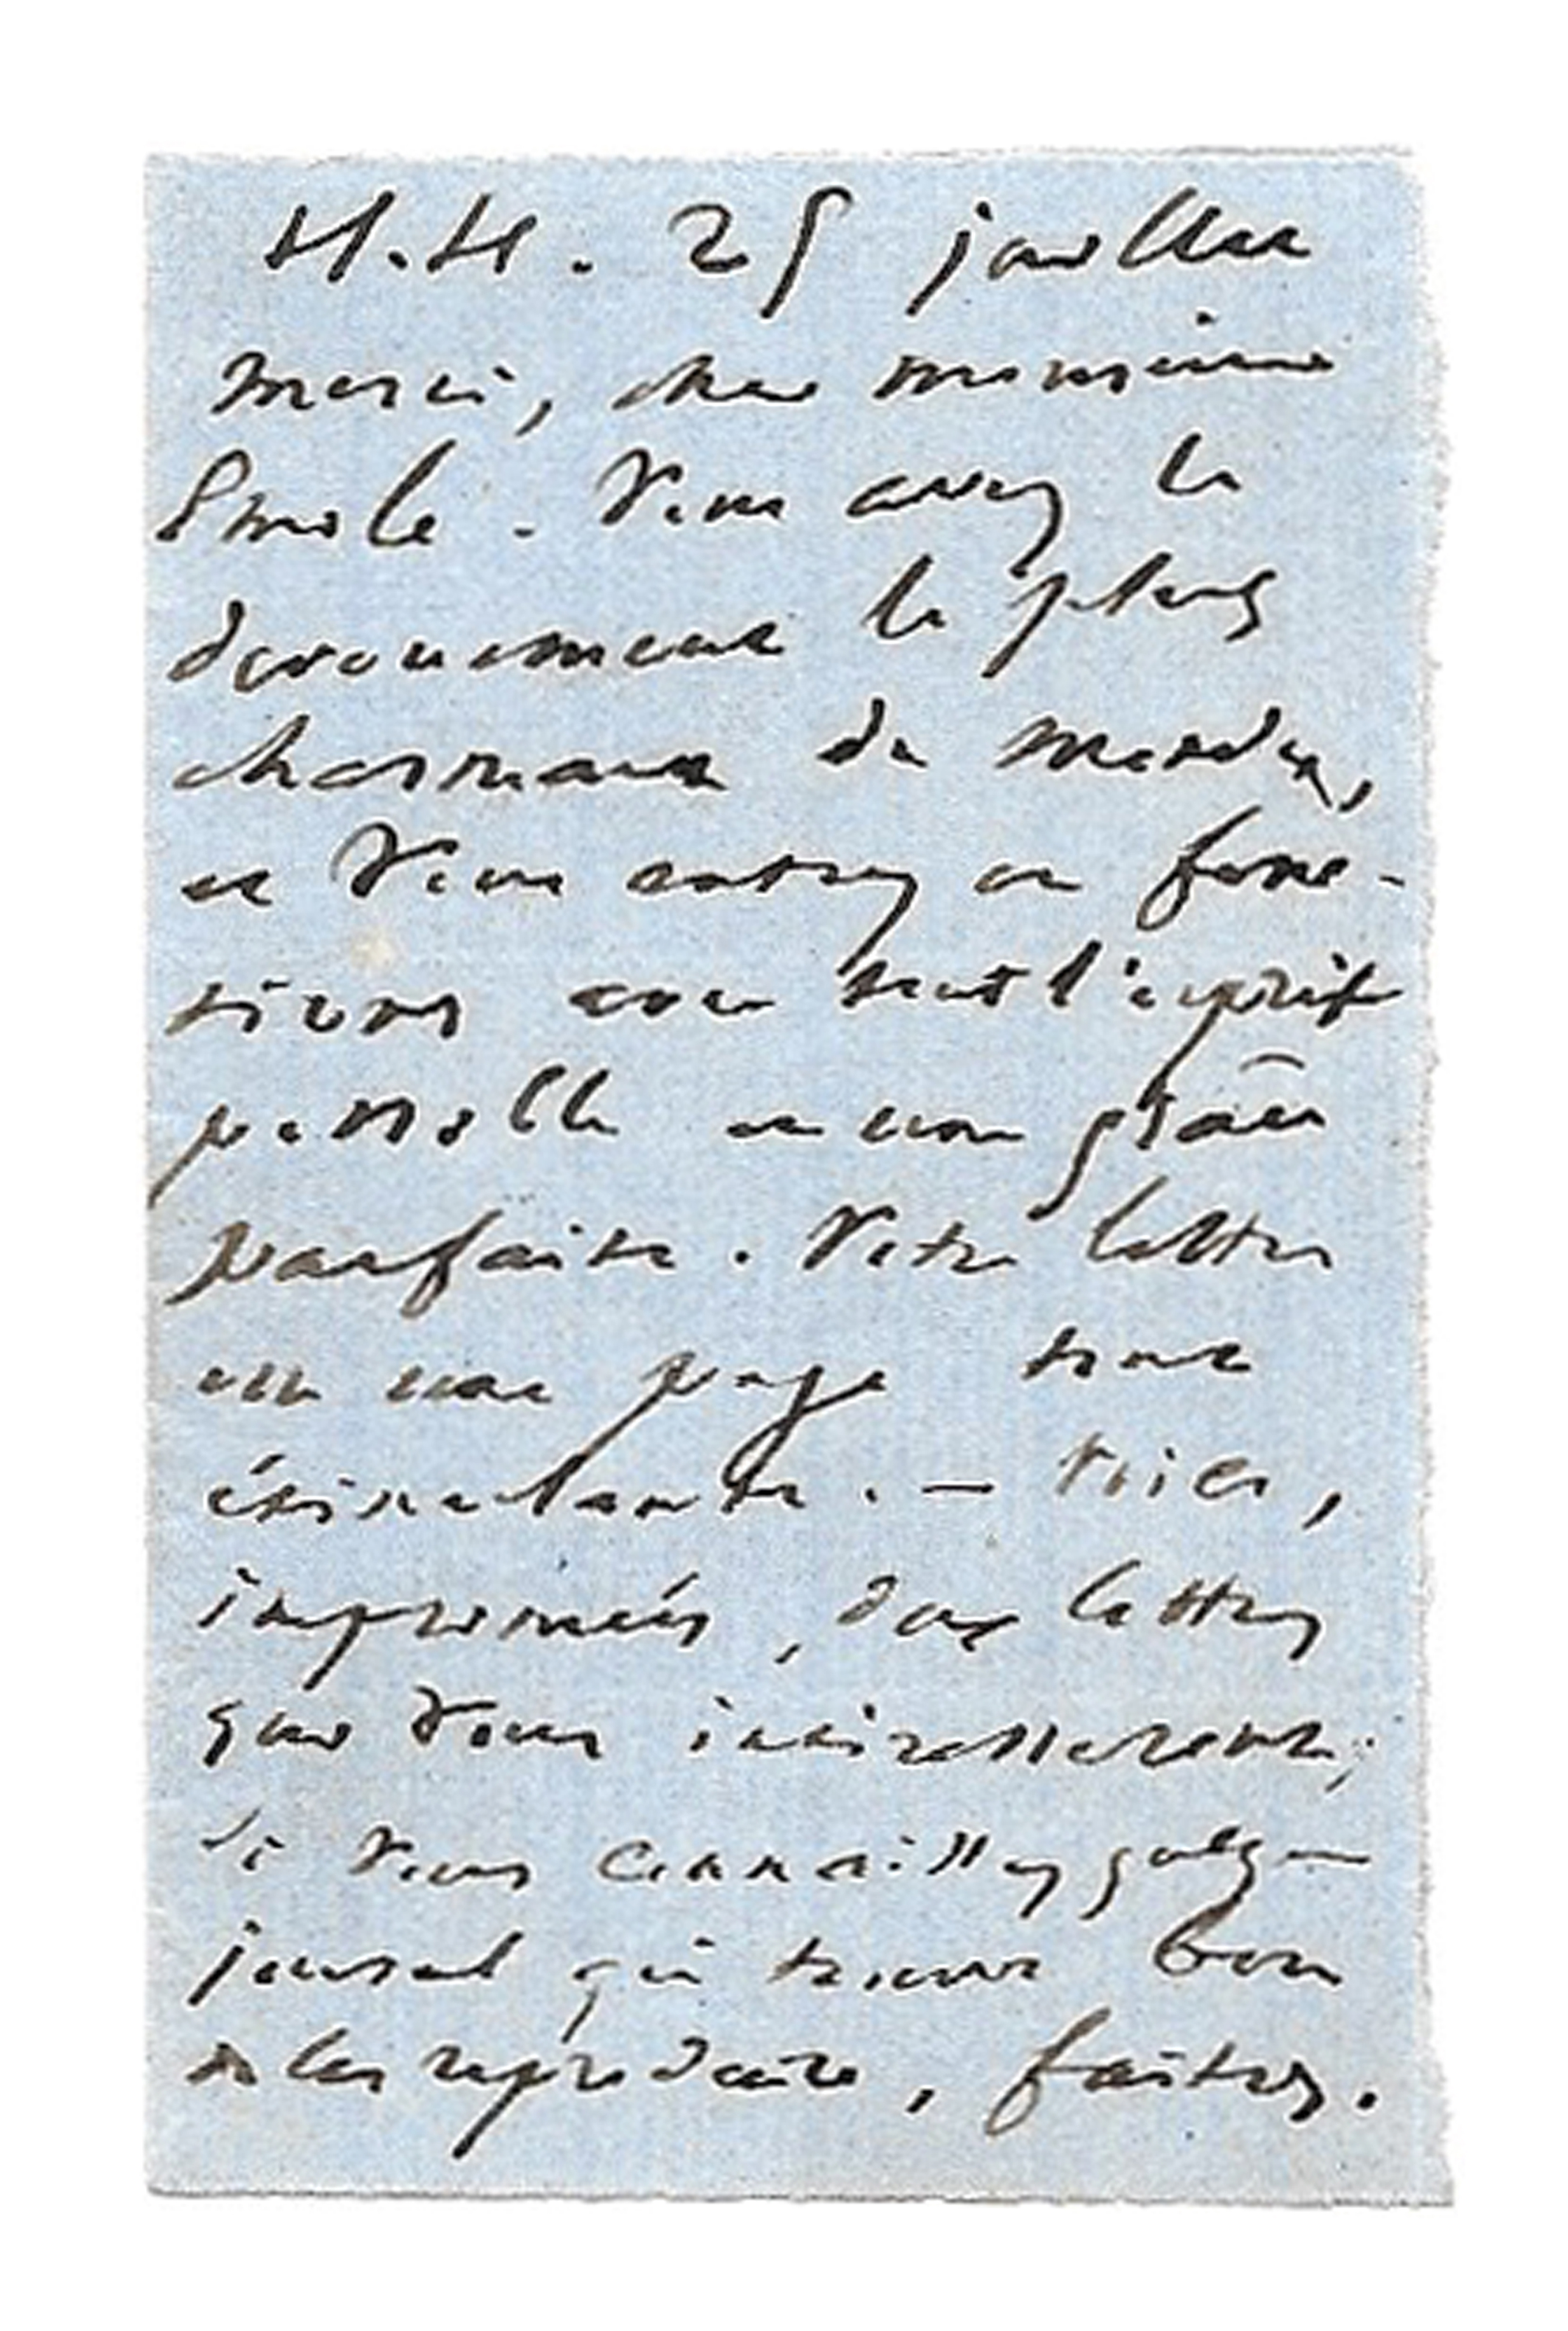 H.H. 25 juillet
Merci, cher monsieur
Émile. Vous avez le
dévouement le plus
charmant du monde,
et vous entrez en fonc-
tions avec tout l'esprit
possible et une grâce
parfaite. Votre lettre
est une page toute
étincelante. — Voici,
imprimées, deux lettres
qui vous intéresseront;
si vous connaissez quelque
journal qui trouve bon
de les reproduire, faites.